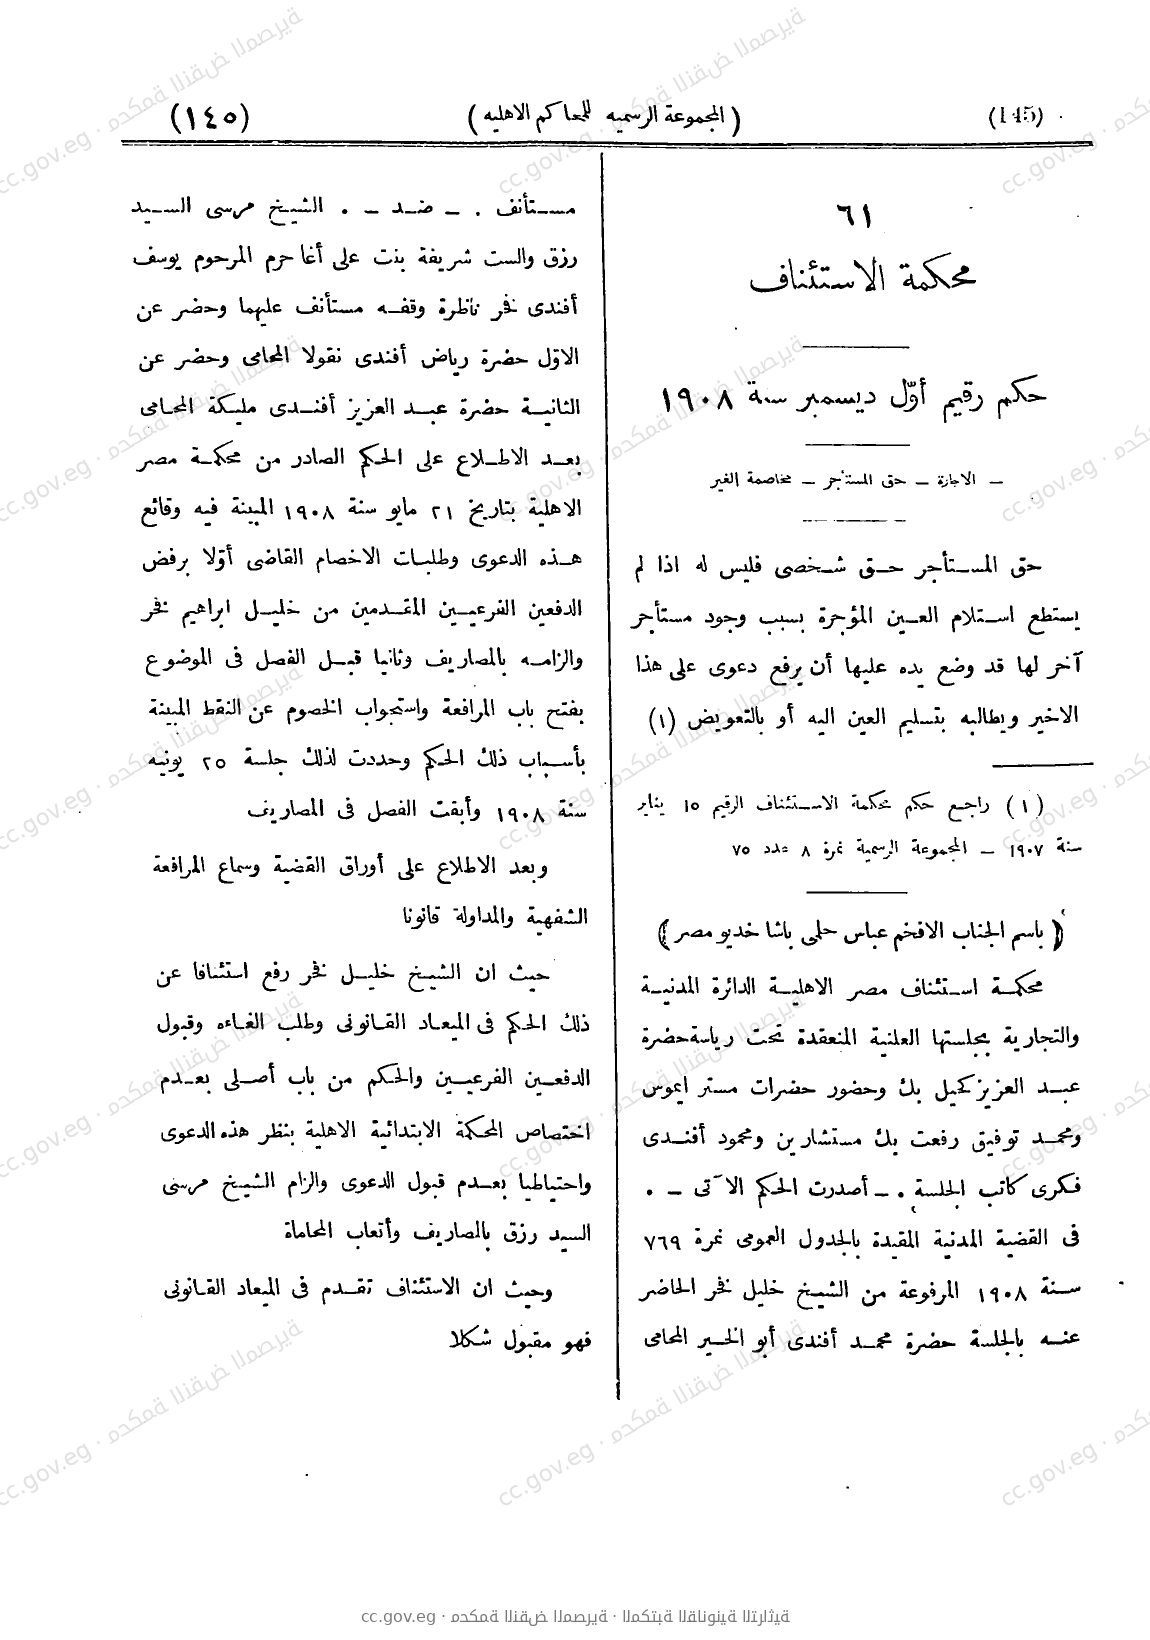 (145)
(المجموعة الرسميه للمحاكم الاهليه)
(١٤٥)
٦١
محكمة الاستئناف
حكم رقيم أوّل ديسمبر سنة ١٩٠٨
— الاجارة — حق المستأجر — مخاصمة الغير
حق المستأجر حق شخصى فليس له اذا لم
يستطع استلام العين المؤجرة بسبب وجود مستأجر
آخر لها قد وضع يده عليها أن يرفع دعوى على هذا
الاخير ويطالبه بتسليم العين اليه أو بالتعويض (١)
(١) راجع حكم محكمة الاستئناف الرقيم ١٥ يناير
سنة ١٩٠٧ — المجموعة الرسمية نمرة ٨ عدد ٧٥
(باسم الجناب الافخم عباس حلمى باشا خديو مصر)
محكمة استئناف مصر الاهلية الدائرة المدنية
والتجارية بجلستها العلنية المنعقدة تحت رياسة حضرة
عبد العزيز كحيل بك وحضور حضرات مستر ايموس
ومحمد توفيق رفعت بك مستشارين ومحمود أفندى
فكرى كاتب الجلسة . — أصدرت الحكم الآتى — .
فى القضية المدنية المقيدة بالجدول العمومى نمرة ٧٦٩
سنة ١٩٠٨ المرفوعة من الشيخ خليل فخر الحاضر
عنه بالجلسة حضرة محمد أفندى أبو الخير المحامى
مستأنف . — ضد — . الشيخ مرسى السيد
رزق والست شريفة بنت على أغا حرم المرحوم يوسف
أفندى فخر ناظرة وقفه مستأنف عليهما وحضر عن
الاوّل حضرة رياض أفندى نقولا المحامى وحضر عن
الثانية حضرة عبد العزيز أفندى مليكة المحامى
بعد الاطلاع على الحكم الصادر من محكمة مصر
الاهلية بتاريخ ٢١ مايو سنة ١٩٠٨ المبينة فيه وقائع
هذه الدعوى وطلبات الاخصام القاضى أوّلا برفض
الدفعين الفرعيين المقدمين من خليل ابراهيم فخر
والزامه بالمصاريف وثانيا قبل الفصل فى الموضوع
بفتح باب المرافعة واستجواب الخصوم عن النقط المبينة
بأسباب ذلك الحكم وحددت لذلك جلسة ٢٥ يونيه
سنة ١٩٠٨ وأبقت الفصل فى المصاريف
وبعد الاطلاع على أوراق القضية وسماع المرافعة
الشفهية والمداولة قانونا
حيث ان الشيخ خليل فخر رفع استئنافا عن
ذلك الحكم فى الميعاد القانونى وطلب الغاءه وقبول
الدفعين الفرعيين والحكم من باب أصلى بعدم
اختصاص المحكمة الابتدائية الاهلية بنظر هذه الدعوى
واحتياطيا بعدم قبول الدعوى والزام الشيخ مرسى
السيد رزق بالمصاريف وأتعاب المحاماة
وحيث ان الاستئناف تقدم فى الميعاد القانونى
فهو مقبول شكلا
cc.gov.eg · محكمة النقض المصرية · المكتبة القانونية التراثية